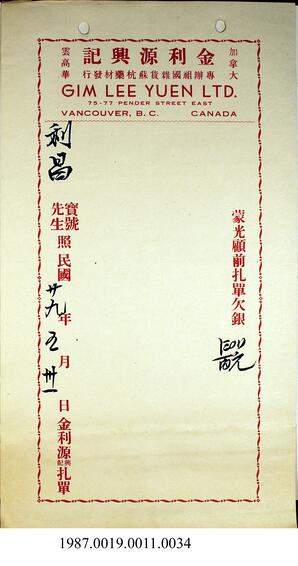 加拿大
金利源興記
專辦祖國雜貨蘇杭藥材發行
雲高華
GIM LEE YUEN LTD.
75-77 PENDER STREET EAST
VANCOUVER, B. C. CANADA
蒙光顧前扎單欠銀
利昌
寶號
先生
照民國廿九年五月卅一日金利源興記扎單
1987.0019.0011.0034